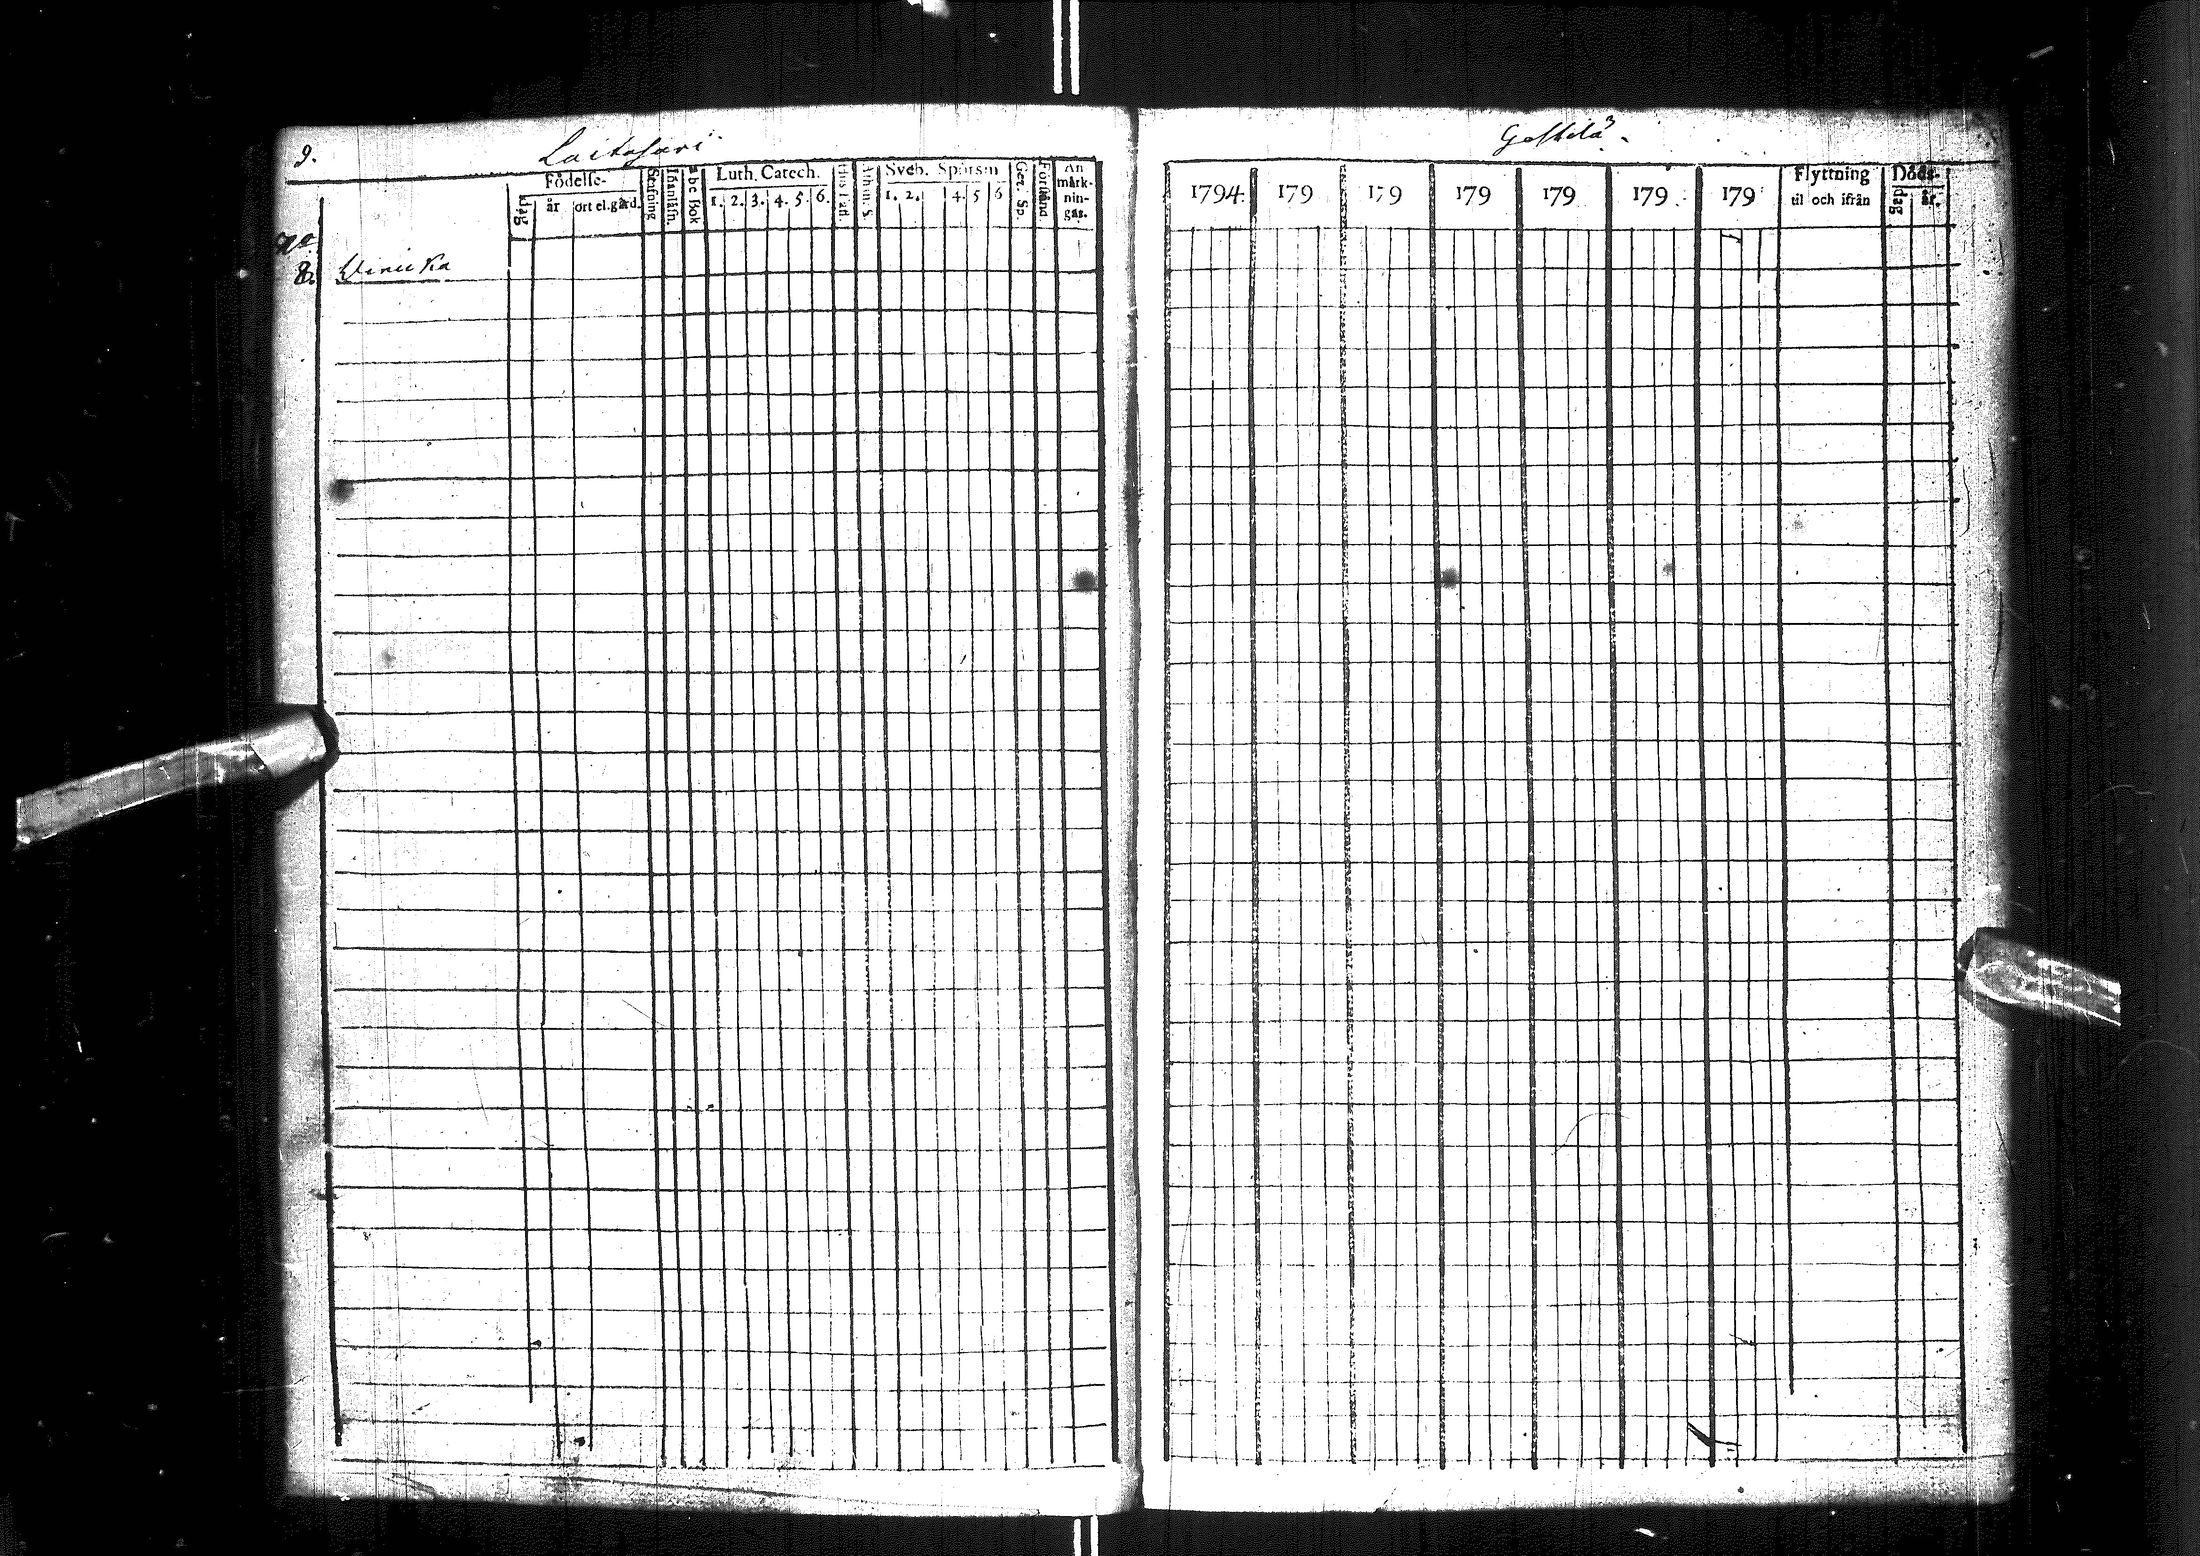 9.
Laitasari
Födelse-
dag
år
ort el. gård.
Skrifning
Innanläsn.
abc Bok
Luth. Catech.
1. 2. 3. 4. 5. 6.
Sveb. Spörsm
1. 2. 4. 5 6
Ger. Sp.
Förstånd
An
märk-
nin-
gar.
8. Winikka
1794. 179 179 179 179 179 179
Flyttning
til och ifrån
Döds-
dag
år.